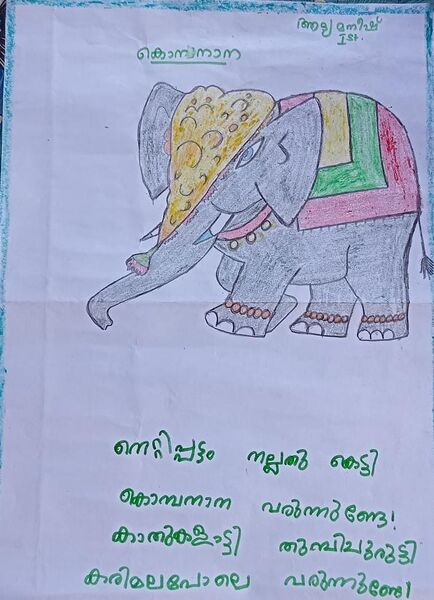 ആമ്യ മനീഷ്
I st.
കൊമ്പനാന
നെറ്റിപ്പട്ടം നല്ലതു കെട്ടി
കൊമ്പനാന വരുന്നുണ്ടേ!
കാതുകളാട്ടി തുമ്പിചുരുട്ടി
കരിമലപോലെ വരുന്നുണ്ടേ!